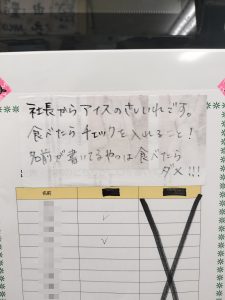 社長からアイスのさしいれです。
食べたらチェックを入れること！
名前が書いてるやつは食べたら
ダメ!!!
名前